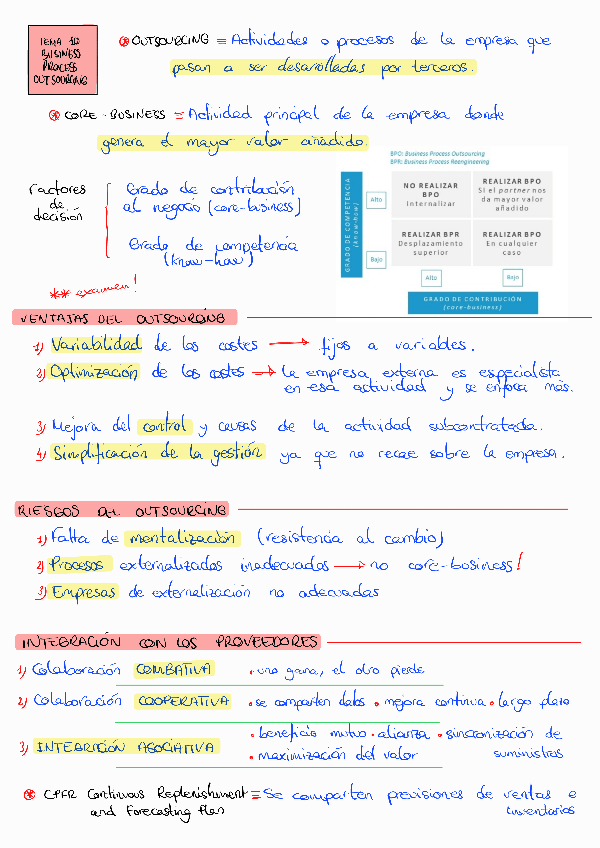 TEMA 10
BUSINESS
PROCESS
OUTSOURCING
* OUTSOURCING = Actividades o procesos de la empresa que
pasan a ser desarrolladas por terceros.
* CORE-BUSINESS = Actividad principal de la empresa donde
genera el mayor valor añadido.
Factores
de
decisión
Grado de contribución
al negocio (core-business)
Grado de competencia
(know-how)
BPO: Business Process Outsourcing
BPR: Business Process Reengineering
GRADO DE COMPETENCIA
(know-how)
Alto
Bajo
NO REALIZAR
BPO
Internalizar
REALIZAR BPO
Si el partner nos
da mayor valor
añadido
REALIZAR BPR
Desplazamiento
superior
REALIZAR BPO
En cualquier
caso
Alto
Bajo
GRADO DE CONTRIBUCIÓN
(core-business)
** examen!
VENTAJAS DEL OUTSOURCING
1) Variabilidad de los costes → fijos a variables.
2) Optimización de los costes → la empresa externa es especialista
en esa actividad y se enfoca más.
3) Mejora del control y causas de la actividad subcontratada.
4) Simplificación de la gestión ya que no recae sobre la empresa.
RIESGOS DEL OUTSOURCING
1) Falta de mentalización (resistencia al cambio)
2) Procesos externalizados inadecuados → no core-business!
3) Empresas de externalización no adecuadas
INTEGRACIÓN CON LOS PROVEEDORES
1) Colaboración COMBATIVA • uno gana, el otro pierde
2) Colaboración COOPERATIVA • se comparten datos • mejora continua • largo plazo
3) INTEGRACIÓN ASOCIATIVA • beneficio mutuo • alianza • sincronización de
suministros
• maximización del valor
* CPFR Continuous Replenishment = Se comparten previsiones de ventas e
and Forecasting Plan inventarios